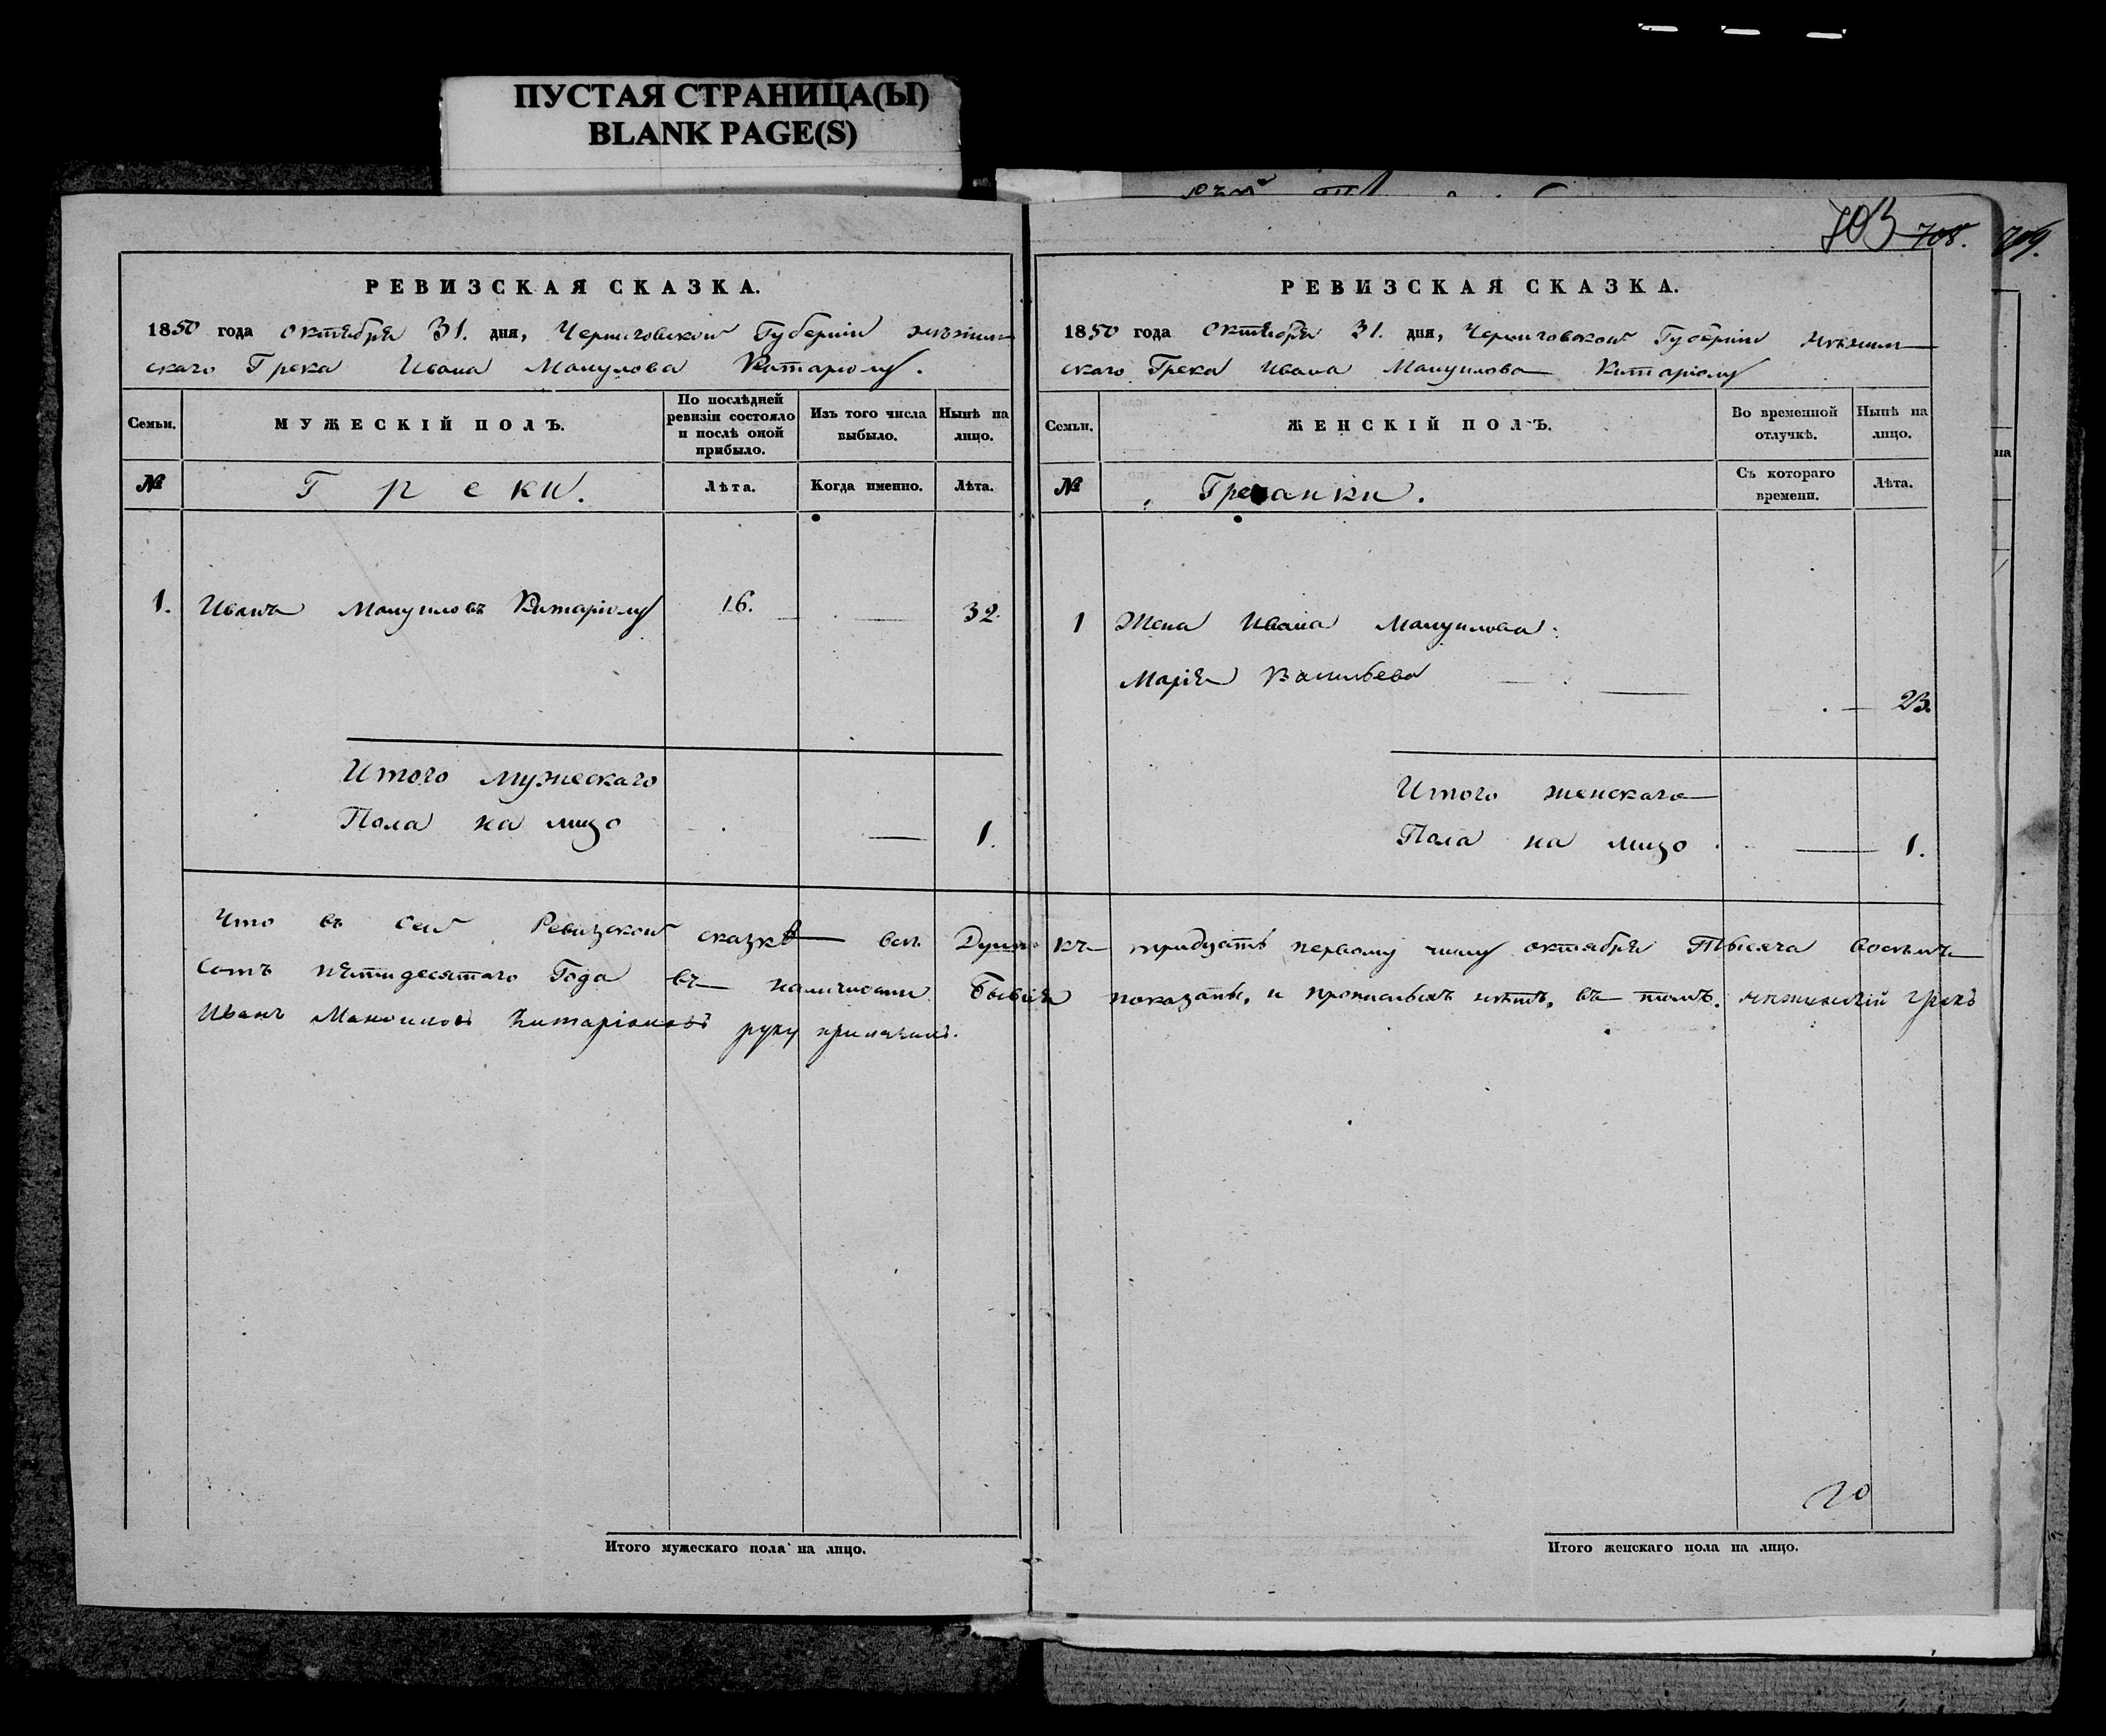 ПУСТАЯ СТРАНИЦА(Ы)
BLANK PAGE(S)
РЕВИЗСКАЯ СКАЗКА.
1850 года Октября 31. дня, Черниговской Губерніи нѣжин
скаго Грека Ивана Мануилова Китаріому.
Семьи.
МУЖЕСКІЙ ПОЛЪ.
По послѣдней ревизіи состояло и послѣ оной прибыло.
Изъ того числа выбыло.
Нынѣ на лицо.
№
Греки.
Лѣта.
Когда именно.
Лѣта.
1. Иванъ Мануиловъ Китаріому 16. 32.
Итого мужескаго
Пола на лицо 1.
Что въ сей Ревизской сказкѣ всѣ Души къ тридцать первому числу октября Тысяча восемь
сотъ пятидесятаго Года въ наличности бывшія показаны, и прописныхъ нѣтъ, въ томъ. нѣжинскій грекъ
Иванъ Мануиловъ Китаріоновъ руку приложилъ.
Итого мужескаго пола на лицо.
703 708. 709.
РЕВИЗСКАЯ СКАЗКА.
1850 года Октября 31. дня, Черниговской Губерніи нѣжин
скаго Грека Ивана Мануилова Китаріому
Семьи.
ЖЕНСКІЙ ПОЛЪ.
Во временной отлучкѣ.
Нынѣ на лицо.
№
Гречанки.
Съ котораго времени.
Лѣта.
1 Жена Ивана Мануилова:
Марія Васильева 23.
Итого женскаго
Пола на лицо 1.
20
Итого женскаго пола на лицо.
на